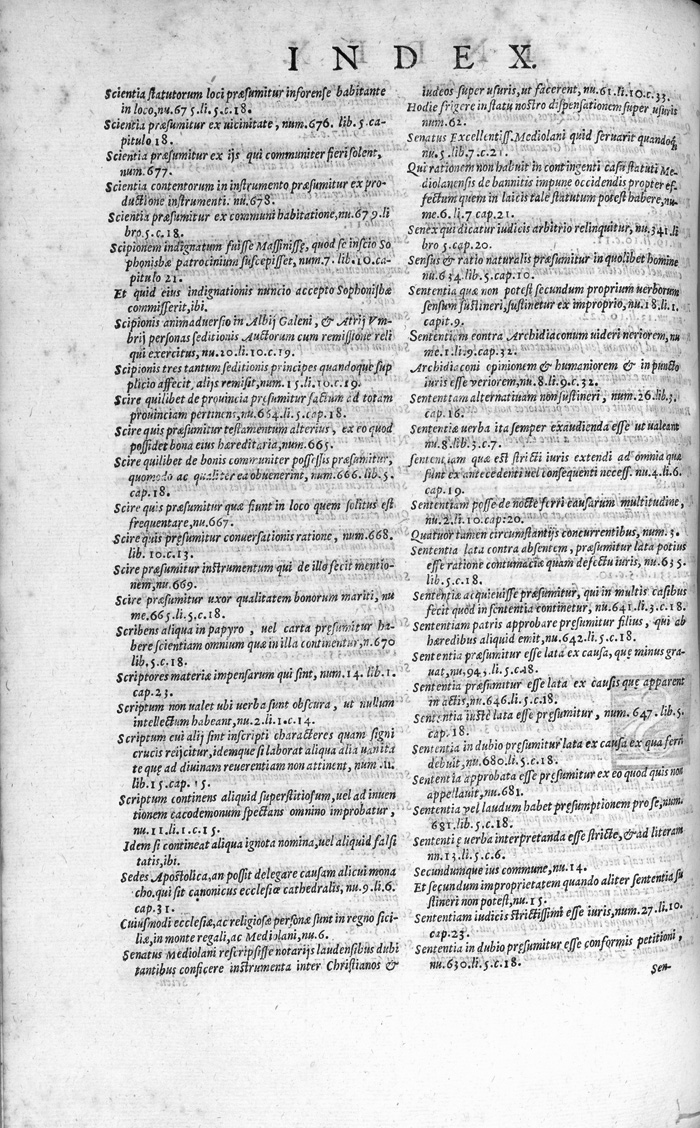 INDEX.
Scientia statutorum loci præsumitur inforense habitante
in loco, nu.675.li.5.c.18.
Scientia præsumitur ex uicinitate, num.676. lib. 5. ca-
pitulo 18.
Scientia præsumitur ex ijs qui communiter fieri solent,
num.677.
Scientia contentorum in instrumento præsumitur ex pro-
ductione instrumenti. nu.678.
Scientia præsumitur ex communi habitatione, nu.679.li
bro 5.c.18.
Scipionem indignatum fuisse Massinissę, quod se inscio So
phonisbæ patrocinium suscepisset, num.7. lib.10.ca-
pitulo 21.
Et quid eius indignationis nuncio accepto Sophonisbæ
commiserit, ibi.
Scipionis animaduersio in Albij Galeni, & Atrij Vm-
brij personas seditionis Auctorum cum remissione reli
qui exercitus, nu.20.li.10.c.19.
Scipionis tres tantum seditionis principes quandoque sup
plicio affecit, alijs remisit, num.15.li.10.c.19.
Scire quilibet de prouincia pręsumitur factum ad totam
prouinciam pertinens, nu.664.li.5.cap.18.
Scire quis præsumitur testamentum alterius, ex eo quod
possidet bona eius hæreditaria, num.665.
Scire quilibet de bonis communiter possessis præsumitur,
quomodo ac qualiter ea obuenerint, num.666.lib.5.
cap.18.
Scire quis præsumitur quæ fiunt in loco quem solitus est
frequentare, nu.667.
Scire quis pręsumitur conuersationis ratione, num.668.
lib. 10.c.13.
Scire præsumitur instrumentum qui de illo fecit mentio-
nem, nu.669.
Scire præsumitur uxor qualitatem bonorum mariti, nu
me.665.li.5.c.18.
Scribens aliqua in papyro, uel carta pręsumitur ha-
bere scientiam omnium quæ in illa continentur, n.670
lib.5.c.18.
Scriptores materiæ impensarum qui sint, num.14. lib.1.
cap.23.
Scriptum non ualet ubi uerba sunt obscura, ut nullum
intellectum habeant, nu.2.li.1.c.14.
Scriptum cui alij sunt inscripti characteres quam signi
crucis reijcitur, idemque si laborat aliqua alia uanita
te quę ad diuinam reuerentiam non attinent, num.11.
lib.15.cap.15.
Scriptum continens aliquid superstitiosum, uel ad inuen
tionem cacodemonum spectans omnino improbatur,
nu.11.li.1.c.15.
Idem si contineat aliqua ignota nomina, uel aliquid falsi
tatis, ibi.
Sedes Apostolica, an possit delegare causam alicui mona
cho.qui sit canonicus ecclesiæ cathedralis, nu.9.li.6.
cap.31.
Cuiusmodi ecclesiæ, ac religiosæ personæ sunt in regno sici-
liæ, in monte regali, ac Mediolani, nu.6.
Senatus Mediolani rescripsisse notarijs laudensibus dubi
tantibus conficere instrumenta inter Christianos &
iudeos super usuris, ut facerent, nu.61.li.10.c.33.
Hodie frigere in statu nostro dispensationem super usuris
num.62.
Senatus Excellentiss. Mediolani quid seruarit quandoq;
nu.5.lib.7.c.21.
Qui rationem non habuit in contingenti casu statuti Me-
diolanensis de bannitis impune occidendis propter ef-
fectum quem in laicis tale statutum potest habere, nu-
me.6.li.7 cap.21.
Senex qui dicatur iudicis arbitrio relinquitur, nu.341.li
bro 5.cap.20.
Sensus & ratio naturalis præsumitur in quolibet homine
nu.634.lib.5.cap.10.
Sententia quæ non potest secundum proprium uerborum
sensum sustineri, sustinetur ex improprio, nu.18.li.1.
capit.9.
Sententiam contra Archidiaconum uideri ueriorem, nu
me.1.li.9.cap.32.
Archidiaconi opinionem & humaniorem & in puncto
iuris esse ueriorem, nu.8.li.9.c.32.
Sententiam alternatiuam non sustineri, num.26.lib.3.
cap.16.
Sententiæ uerba ita semper exaudienda esse ut ualeant
nu.8.lib.3.c.7.
sententiam quæ est stricti iuris extendi ad omnia quæ
sunt ex antecedenti uel consequenti necess. nu.4.li.6.
cap.19.
Sententiam posse de nocte ferri causarum multitudine,
nu.2.li.10.cap.20.
Quatuor tamen circumstantijs concurrentibus, num.3.
Sententia lata contra absentem, præsumitur lata potius
esse ratione contumaciæ quam defectu iuris, nu.635.
lib.5.c.18.
Sententiæ acquieuisse præsumitur, qui in multis casibus
fecit quod in sententia continetur, nu.641.li.3.c.18.
Sententiam patris approbare presumitur filius, qui ab
hæredibus aliquid emit, nu.642.li.5.c.18.
Sententia præsumitur esse lata ex causa, quę minus gra-
uat, nu.94.li.5.c.18.
Sententia præsumitur esse lata ex causis quę apparent
in actis, nu.646.li.5.c.18.
Sententia iustè lata esse pręsumitur, num. 647.lib.5.
cap.18.
Sententia in dubio pręsumitur lata ex causa ex qua ferri
debuit, nu.680.li.5.c.18.
Sententia approbata esse presumitur ex eo quod quis non
appellauit, nu.681.
Sententia uel laudum habet presumptionem pro se, num.
681.lib.5.c.18.
Sententię uerba interpretanda esse strictè, & ad literam
nn.13.li.5.c.6.
Secundumque ius commune, nu.14.
Et secundum improprietatem quando aliter sententia su
stineri non potest, nu.15.
Sententiam iudicis strictissimi esse iuris, num.27.li.10.
cap.23.
Sententia in dubio pręsumitur esse conformis petitioni,
nu.630.li.5.c.18.
Sen-